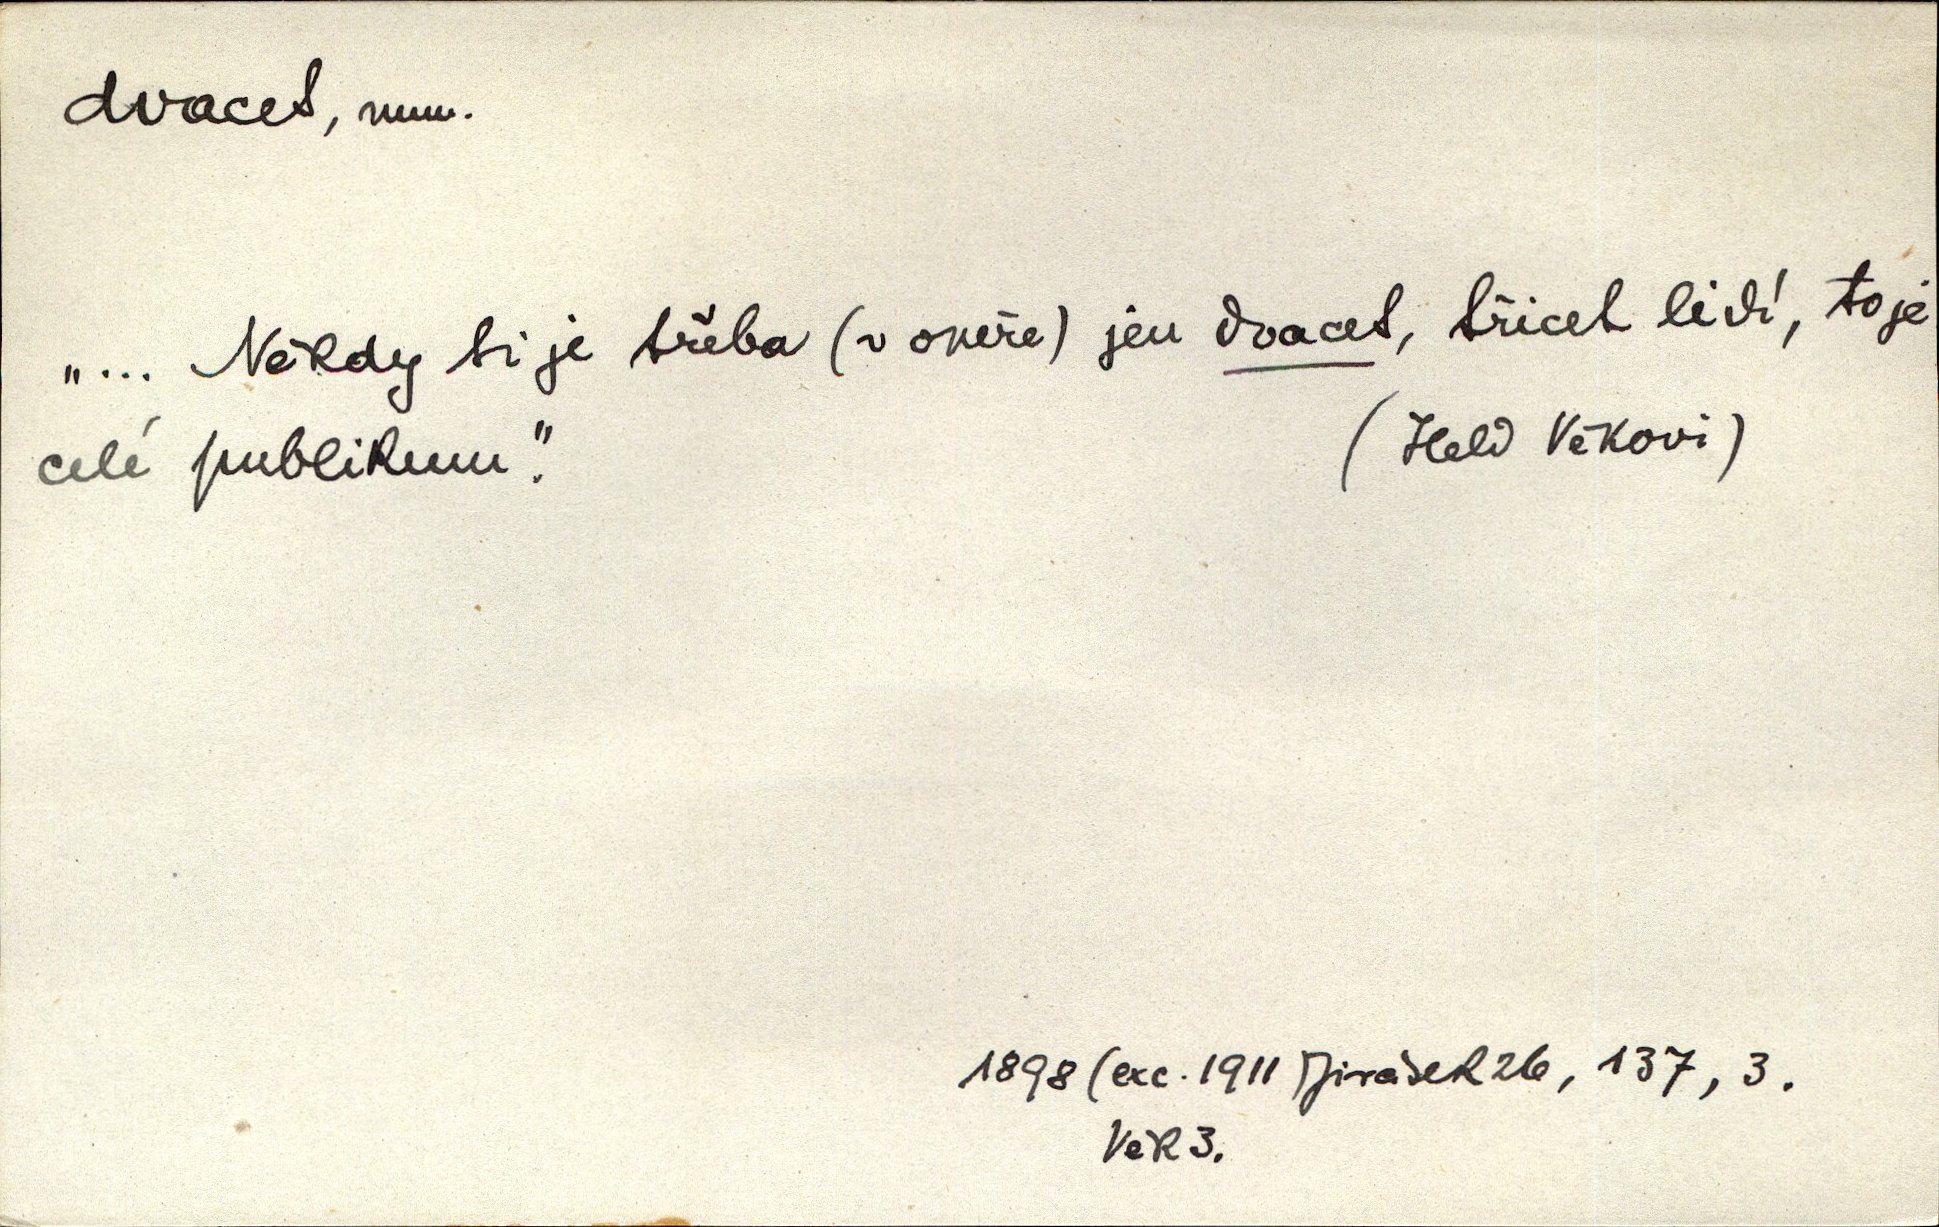 dvacet, num.
„... Někdy ti je třeba (v opeře) jen dvacet, třicet lidí, to je
celé publikum".
(Held Věkovi)
1898 (exc. 1911) Jirásek 26, 137, 3.
Věk 3.